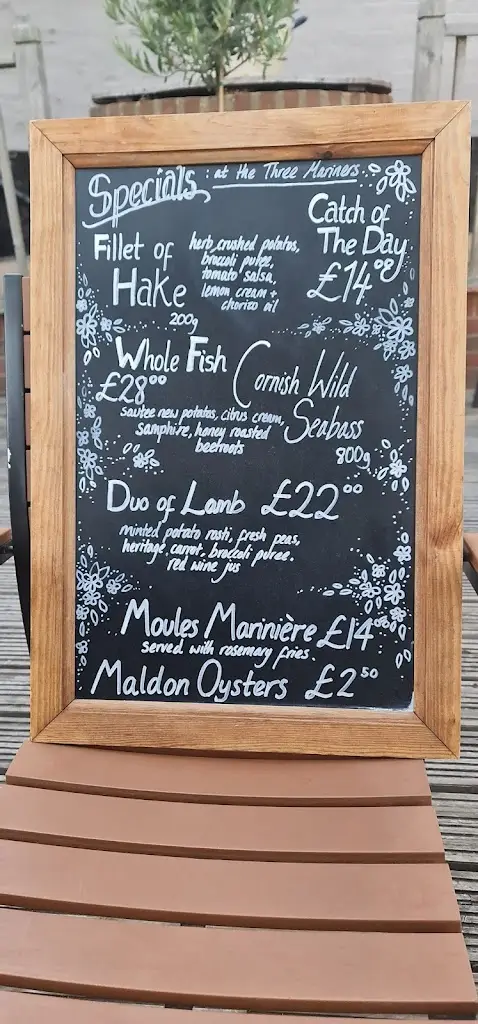 Specials : at the Three Mariners
Catch of
The Day
£14.00
Fillet of
Hake
200g
herb crushed potatos,
broccoli puree,
tomato salsa,
lemon cream +
chorizo oil
Whole Fish
£28.00
Cornish Wild
Seabass
800g
sautee new potatos, citrus cream,
samphire, honey roasted
beetroots
Duo of Lamb £22.00
minted potato rosti, fresh peas,
heritage carrot, broccoli puree.
red wine jus
Moules Marinière £14.00
served with rosemary fries.
Maldon Oysters £2.50